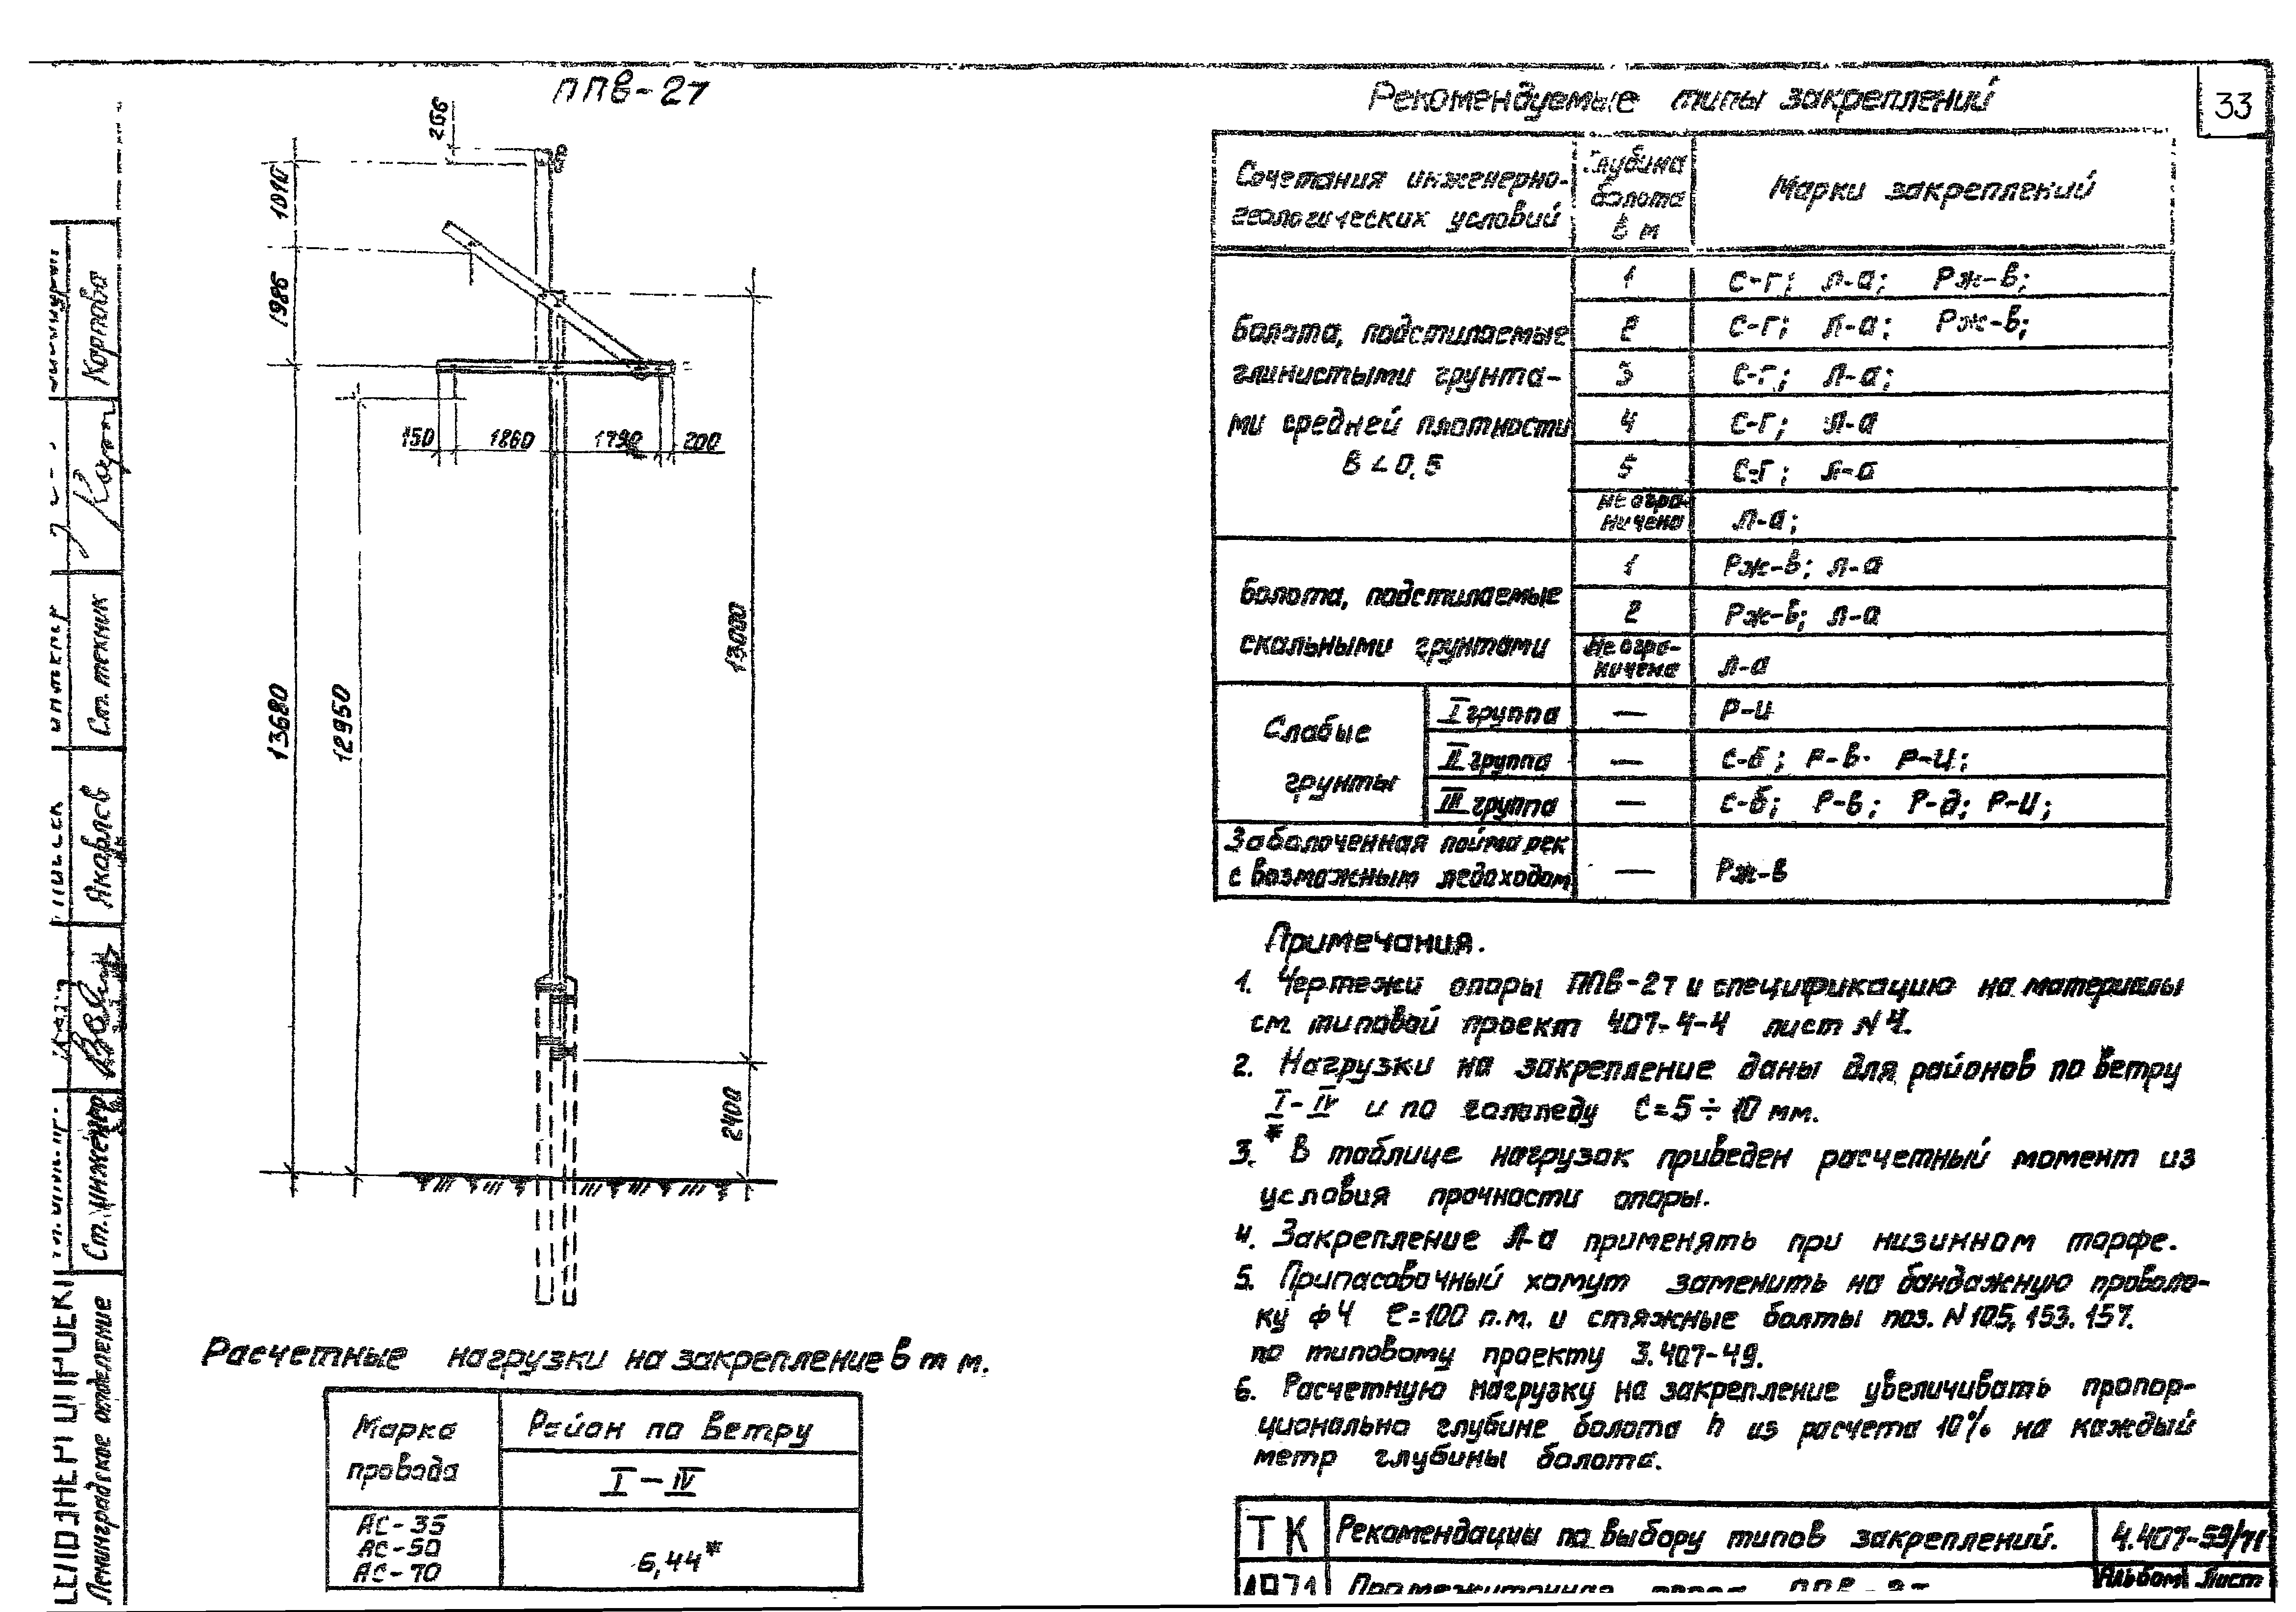 ППВ-2т
Рекомендуемые типы закреплений
33
266
1010
1986
13680
12950
150 1860 1790 200
13000
2400
Сочетания инженерно-
геологических условий
Глубина
болота
в м
Марки закреплений
Болота, подстилаемые
глинистыми грунта-
ми средней плотности
B < 0,5
1 С-г; Л-а; Рж-в;
2 С-г; Л-а; Рж-в;
3 С-г; Л-а;
4 С-г; Л-а
5 С-г; Л-а
Не огра-
ничено
Л-а;
Болота, подстилаемые
скальными грунтами
1 Рж-в; Л-а
2 Рж-в; Л-а
Не огра-
ничено
Л-а
Слабые
грунты
I группа — Р-и
II группа — С-б; Р-в. Р-и;
III группа — С-б; Р-в; Р-д; Р-и;
Заболоченная пойма рек
с возможным ледоходом
— Рж-в
Примечания.
1. Чертежи опоры ППВ-2т и спецификацию на материалы
см. типовой проект 407-4-4 лист N 4.
2. Нагрузки на закрепление даны для районов по ветру
I-IV и по гололеду С=5÷10 мм.
3.* В таблице нагрузок приведен расчетный момент из
условия прочности опоры.
4. Закрепление Л-а применять при низинном торфе.
5. Припасовочный хомут заменить на бандажную проволо-
ку ф4 ℓ=100 п.м. и стяжные болты поз. N 105, 153. 157.
по типовому проекту 3.407-49.
6. Расчетную нагрузку на закрепление увеличивать пропор-
ционально глубине болота h из расчета 10% на каждый
метр глубины болота.
Расчетные нагрузки на закрепление в т м.
Марка
провода
Район по ветру
I-IV
АС-35
АС-50
АС-70
6,44*
ТК
Рекомендации по выбору типов закреплений.
4.407-59/71
1971
Промежуточная опора ППВ-2т
Альбом Лист
Карпова
Ст. техник
Яковлев
Ст. инженер
Ленинградское отделение